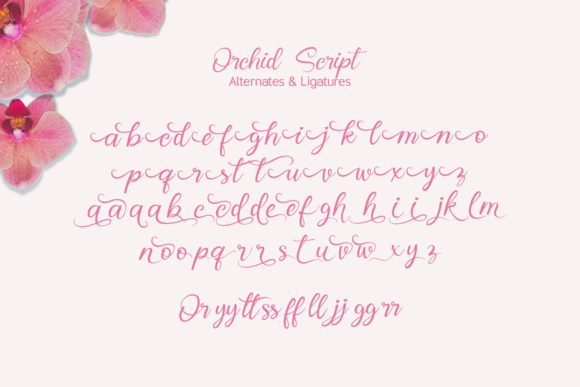 Orchid Script
Alternates & Ligatures
a b c d e f g h i j k l m n o
p q r s t t u v w x y z
a a a a b c e d d e e f g h h i i j k l m
n o o p q r r s t u v w x y z
Or yy tt ss ff ll jj gg rr